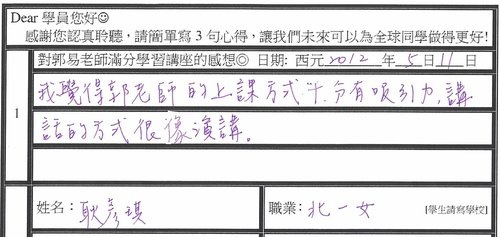 Dear 學員您好☺
感謝您認真聆聽，請簡單寫 3 句心得，讓我們未來可以為全球同學做得更好!
對郭易老師滿分學習講座的感想◎ 日期: 西元2012 年5月11日
1 我覺得郭老師的上課方式十分有吸引力，講
話的方式很像演講。
姓名：耿彥琪 職業：北一女 [學生請寫學校]